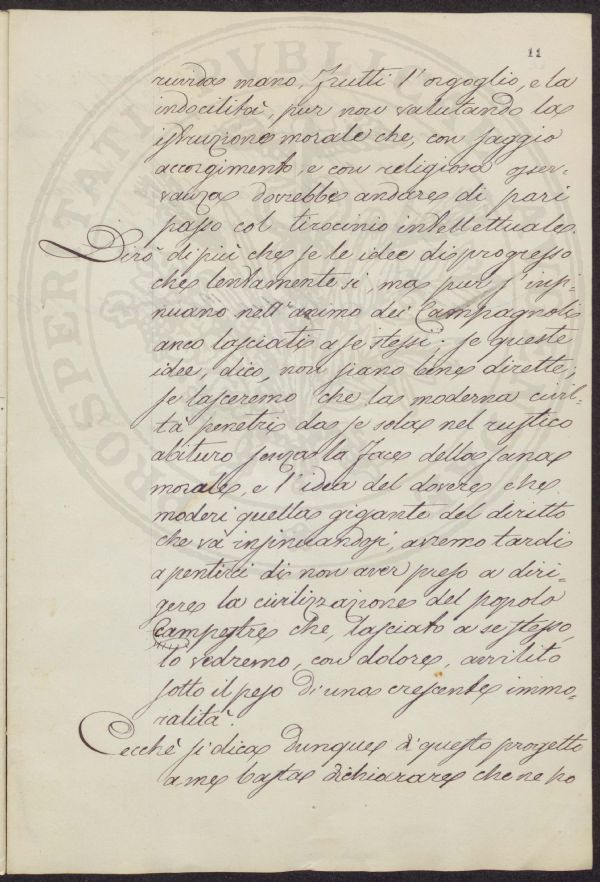 11
ruvida mano, frutti l'orgoglio, e la
indocilità, pur non valutando la
istruzione morale che, con saggio
accorgimento, e con religiosa osser-
vanza dovrebbe andare di pari
passo col tirocinio intellettuale.
Dirò di più che se le idee di progresso
che lentamente sì, ma pur s'insi-
nuano nell'animo dei Campagnoli
anco lasciati a se stessi; se queste
idee, dico, non siano bene dirette,
se lasceremo che la moderna civil-
tà penetri da se sola nel rustico
abituro senza la face della sana
morale, e l'idea del dovere che
moderi quella gigante del diritto
che và insinuandosi, avremo tardi
a pentirci di non aver preso a diri-
gere la civilizzazione del popolo
campestre che, lasciato a se stesso,
lo vedremo, con dolore, avvilito
sotto il peso di una crescente immo-
ralità.
Cecchè si dica dunque di questo progetto
a me basta dichiarare che ne ho